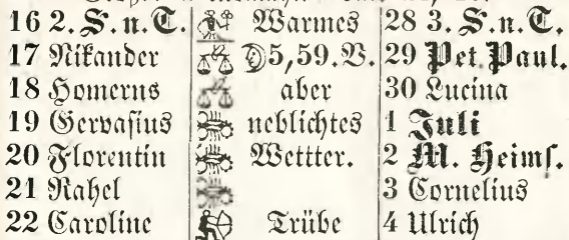 16 2. S. n. T. Warmes 28 3. S. n. T.
17 Nikander ☽5,59. V. 29 Pet. Paul.
18 Homerus aber 30 Lucina
19 Gervasius neblichtes 1 Juli
20 Florentin Wettter. 2 M. Heims.
21 Rahel 3 Cornelius
22 Caroline Trübe 4 Ulrich